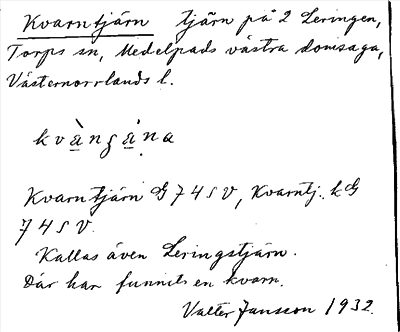 Kvarntjärn tjärn på 2 Leringen,
Torps sn, Medelpads västra domsaga,
Västernorrlands l.
kvàngána
Kvarntjärn G 74 s V, Kvarntj. kG
74 s V.
Kallas även Leringstjärn.
Där har funnits en kvarn.
Valter Jansson 1932.